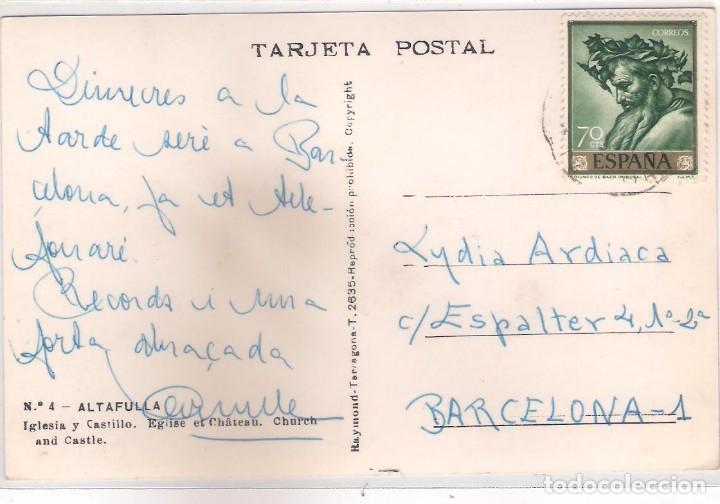 TARJETA POSTAL
CORREOS
70
CTS
ESPAÑA
Dimecres a la
tarde seré a Bar
çelona, ja et tele-
fonaré.
Records i una
forta abraçada
Nº 4 – ALTAFULLA
Iglesia y Castillo. Eglise et Château. Church
and Castle.
Raymond-Tarragona-T. 2635-Reproducción prohibida. Copyright
Lydia Ardiaca
c/Espalter 4, 1º-2ª
BARCELONA-1
todocoleccion